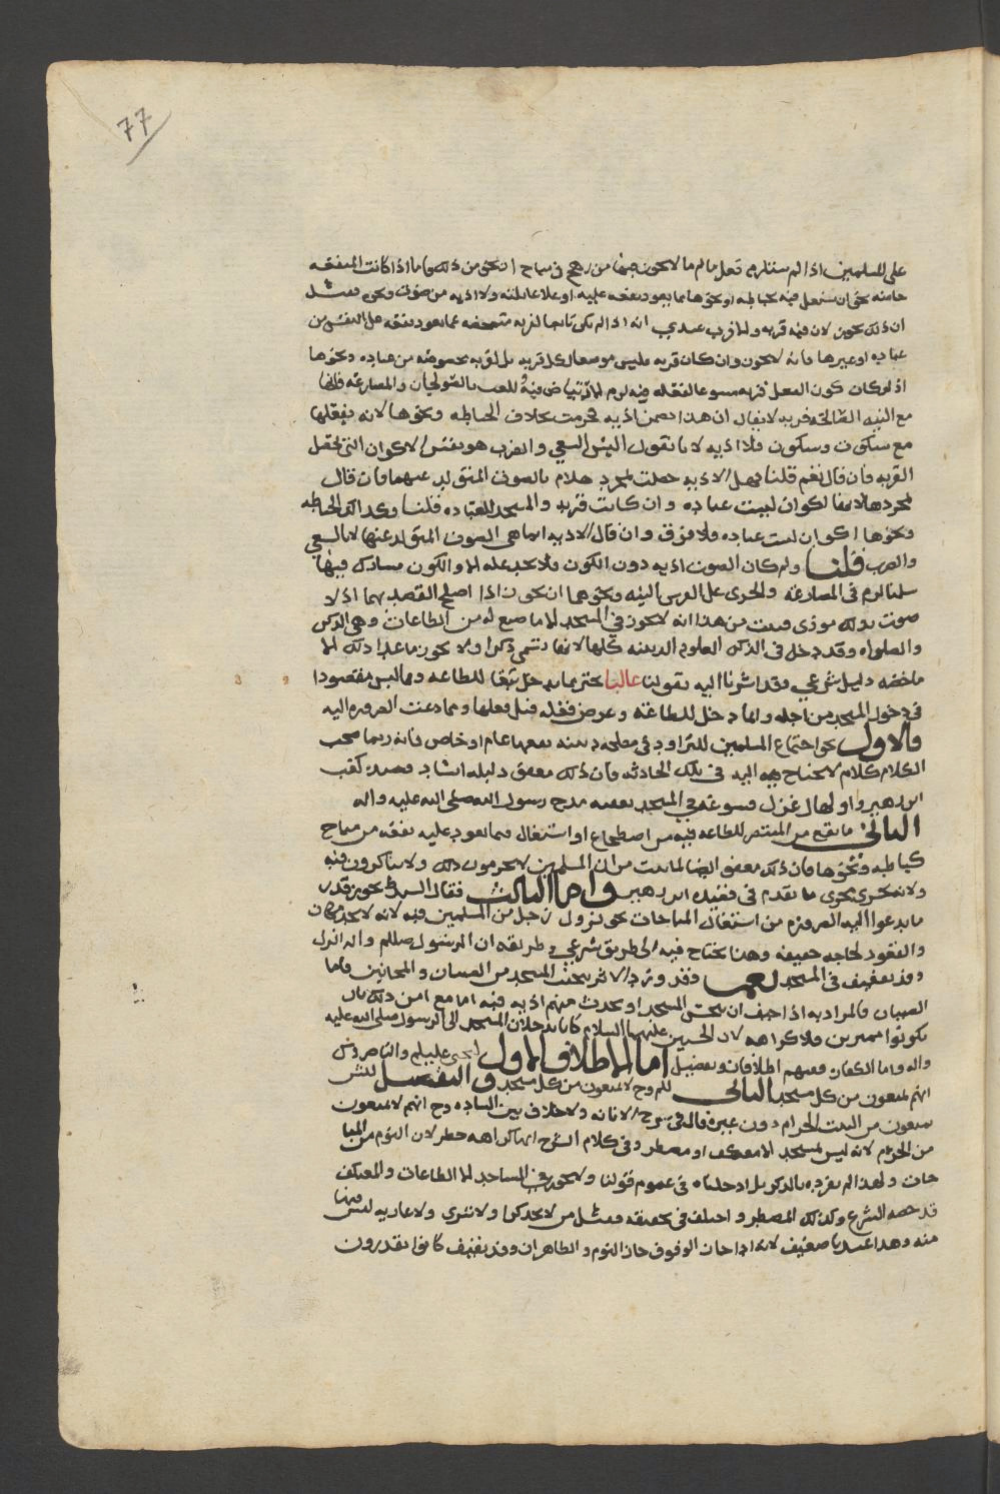 77
على المسلمين اذا لم ستلزم فعل ما لا يجوز من في مباح او نحو من ذلك واما اذا كانت المنفعه
خاصه نحو ان يستعمل فيه خياطه او نحوها مما يعود نفعه عليه او على عائلته ولا اذيه من صوت ونحوه
ان ذلك يجوز لان فيه قربه والاقرب عندي انه اذا لم يكن تابعا لقربه متمحضه مما يعود نفعه على النفس من
عباده او غيرها فانه لا يجوز وان كان قربه فليس موضعا لكل قربه بل لقربه مخصوصه من عباده ونحوها
اذ لو كان كون الفعل قربه مسوغا لفعله فيه لزم للعب بالصولجان والمصارعه فانها
مع النيه الصالحه قربه لا يقال ان هذا تضمن اذيه فحرمت بخلاف الخياطه ونحوها لانه يفعلها
مع سكوت وسكون فلا اذيه لانا نقول اليس السعي والضرب هو نفس الاكوان التي تحصل
القربه فان قال نعم قلنا فهل الاذيه حصلت بمجردها ام بالصوت المتولد عنهما فان قال
بمجردها لانها اكوان ليست عباده وان كانت قربه والمسجد للعباده قلنا وكذلك الخياطه
ونحوها اكوان ليست عباده ولا فرق وان قال الاذيه انما هي الصوت المتولد عنها لا السعي
والضرب قلنا ولم كان الصوت اذيه دون الكون ولا نجد عله الا والكون مشارك فيها
سلمنا لزم في المصارعه والجري على الفرس اللينه ونحوهما ان يجوز اذا اصلح القصد بهما اذ لا
صوت بذلك موذي فثبت من هذا انه لا يجوز في المسجد الا ما وضع له من الطاعات وهي الذكر
والصلواه وقد دخل في الذكر العلوم الدينيه كلها لانها تسمى ذكرا ولا يجوز ما عدا ذلك الا
ما خصه دليل شرعي وقد اشرنا اليه بقولنا غالبا نحترز مما يدخل تبعا للطاعه ومما ليس مقصودا
في دخول المسجد من اجله وانما دخل للطاعه وعرض فعله قبل فعلها ومما دعت الضروره اليه
فالاول نحو اجتماع المسلمين للتراود في مصلحه دينيه نفعها عام او خاص فانه ربما صحب
الكلام كلام لا يحتاج اليه في تلك الحادثه فان ذلك معفو دليله انشاد قصيده كعب
ابن زهير واولها غزل فسوغه في المسجد تعقبه مدح رسول الله صلى الله عليه واله
الثاني ما يقع من المنتظر للطاعه فيه من اضطجاع او اشتغال بما يعود عليه نفعه من مباح
كخياطه ونحوها فان ذلك معفو ايضا لما ثبت من ان المسلمين لا يحرمون ذلك ولا يتناكرون فيه
ولانه يجري مجرى ما تقدم في قصيده ابن زهير واما الثالث فقال السيد يجوز بقدر
ما يدعوا اليه الضروره من استعمال المباحات نحو نزول رجل من المسلمين فيه لانه لا يجد مكان
والقعود لحاجه خفيفه وهذا يحتاج فيه الى طريق شرعي وطريقه ان الرسول صللم واله انزل
وفد ثقيف في المسجد نعم وقد ورد الاثر بتجنب المسجد من الصبيان والمجانين فاما
الصبيان فالمراد به اذا خيف ان المسجد او يحدث منهم اذيه فيه اما مع امن ذلك بان
يكونوا مميزين فلا كراهه لان الحسنين عليهما السلام كانا يدخلان المسجد الى الرسول صلى الله عليه
واله واما الكفار ففيهم اطلاقان وتفصيل اما الاطلاق الاول والناصر وش
انهم يمنعون من كل مسجد الثاني للم وح لا يمنعون من كل مسجد و التفصيل لش
يمنعون من البيت الحرام دون غيره قال في شرح الابانه ولا خلاف بين الساده وح انهم لا يمنعون
من الحرم لانه ليس لمسجد الا معتكف او مضطر وفي كلام الشرح انها كراهه حظر لان النوم من المبا
حات ولهذا لم نفرده بالذكر بل ادخلناه في عموم قولنا ولا يجوز في المساجد الا الطاعات والمعتكف
قد خصه الشرع وكذلك المضطر واختلف في تحقيقه فقيل من لا يجد كرا ولا شرى ولا عاريه ليس فيها
منه وهذا عندنا ضعيف لانه اذا جاز الوقوف جاز النوم والظاهر ان وفد ثقيف كانوا يقدرون